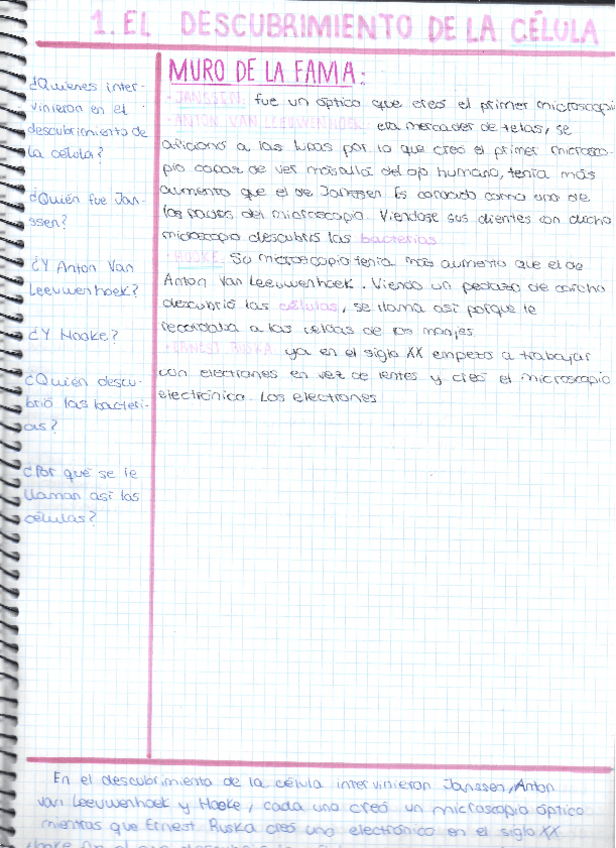 1. EL DESCUBRIMIENTO DE LA CÉLULA
¿Quienes inter-
vinieron en el
descubrimiento de
la célula?
¿Quién fue Jan-
ssen?
¿Y Anton Van
Leeuwenhoek?
¿Y Hooke?
¿Quién descu-
brió las bacteri-
as?
¿Por qué se le
llaman así las
células?
MURO DE LA FAMA:
· JANSSEN: fue un óptico que creó el primer microscopi
· ANTON VAN LEEUWENHOEK: era mercader de telas, se
aficionó a las lupas por lo que creó el primer microsco-
pio capaz de ver más allá del ojo humano, tenía más
aumento que el de Janssen. Es conocido como uno de
los padres del microscopio. Viendose sus dientes con dicho
microscopio descubrió las bacterias
· HOOKE: Su microscopio tenía más aumento que el de
Anton Van Leeuwenhoek. Viendo un pedazo de corcho
descubrió las células, se llama así porque le
recordaba a las celdas de los monjes
· ERNEST RUSKA: ya en el siglo XX empezó a trabajar
con electrones en vez de lentes y creó el microscopio
electrónico. Los electrones
En el descubrimiento de la célula intervinieron Janssen, Anton
van Leeuwenhoek y Hooke, cada uno creó un microscopio óptico
mientras que Ernest Ruska creó uno electrónico en el siglo XX